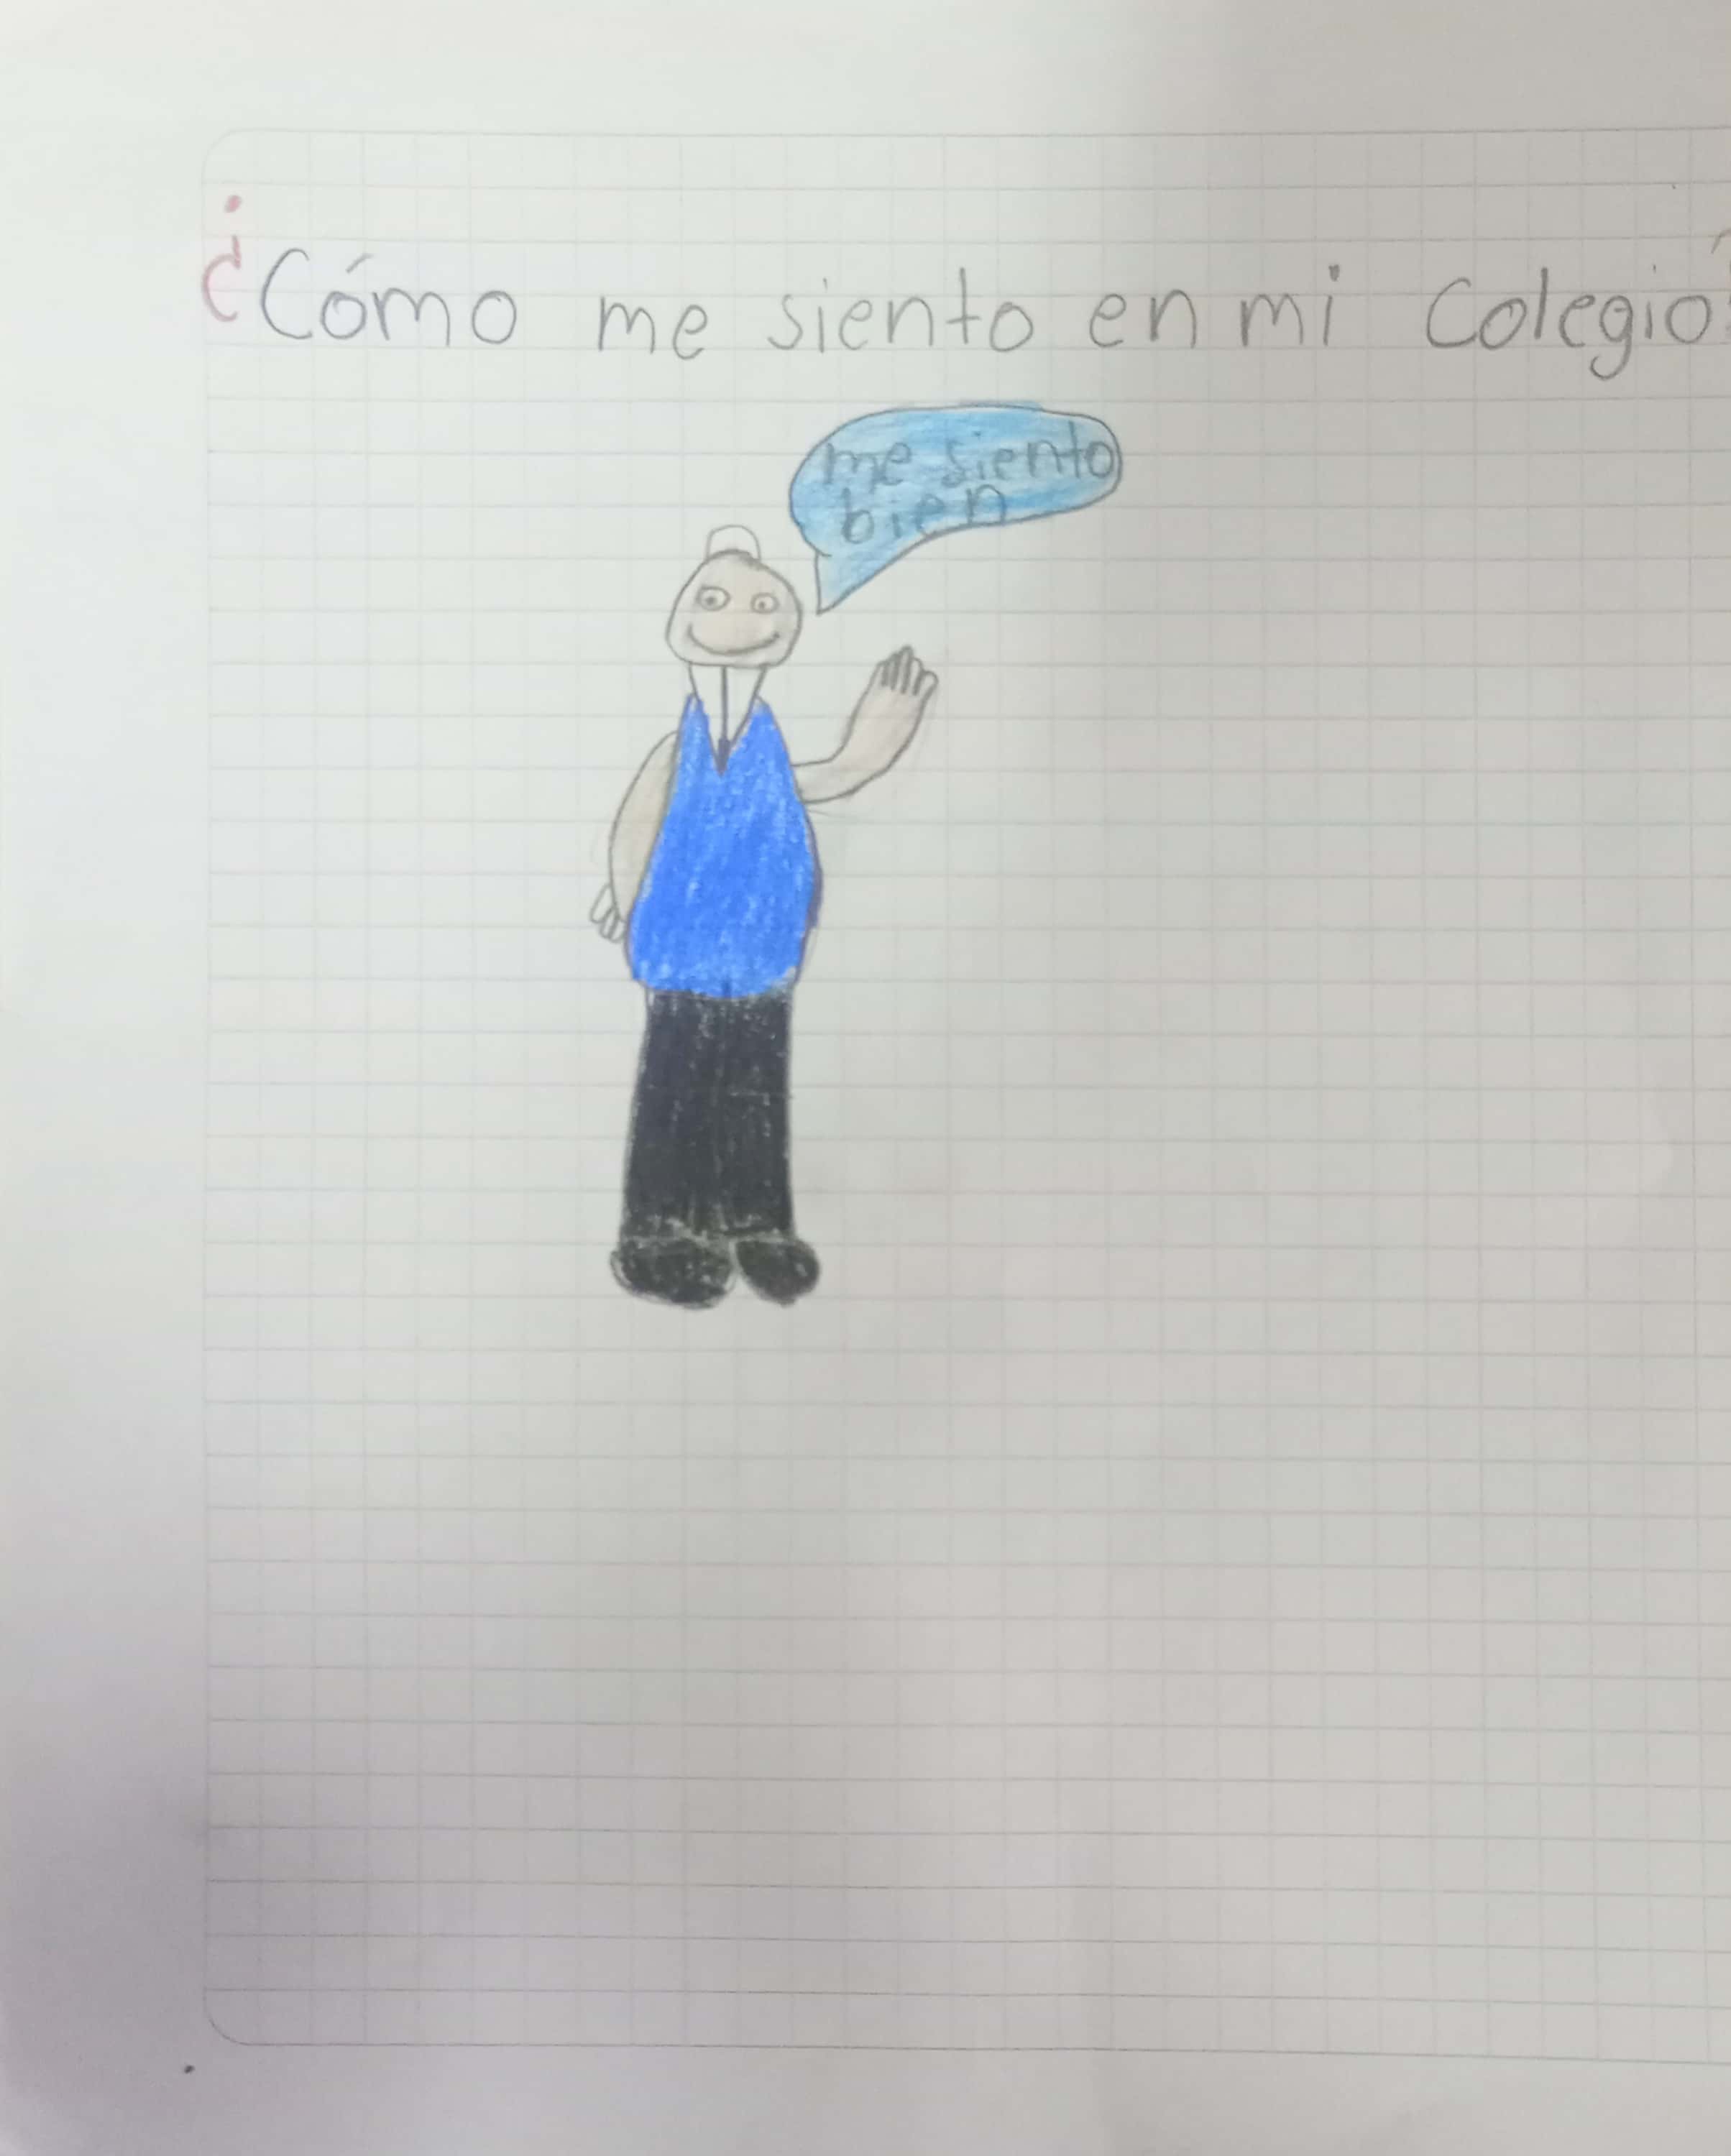 ¿Cómo me siento en mi Colegio?
me siento
bien